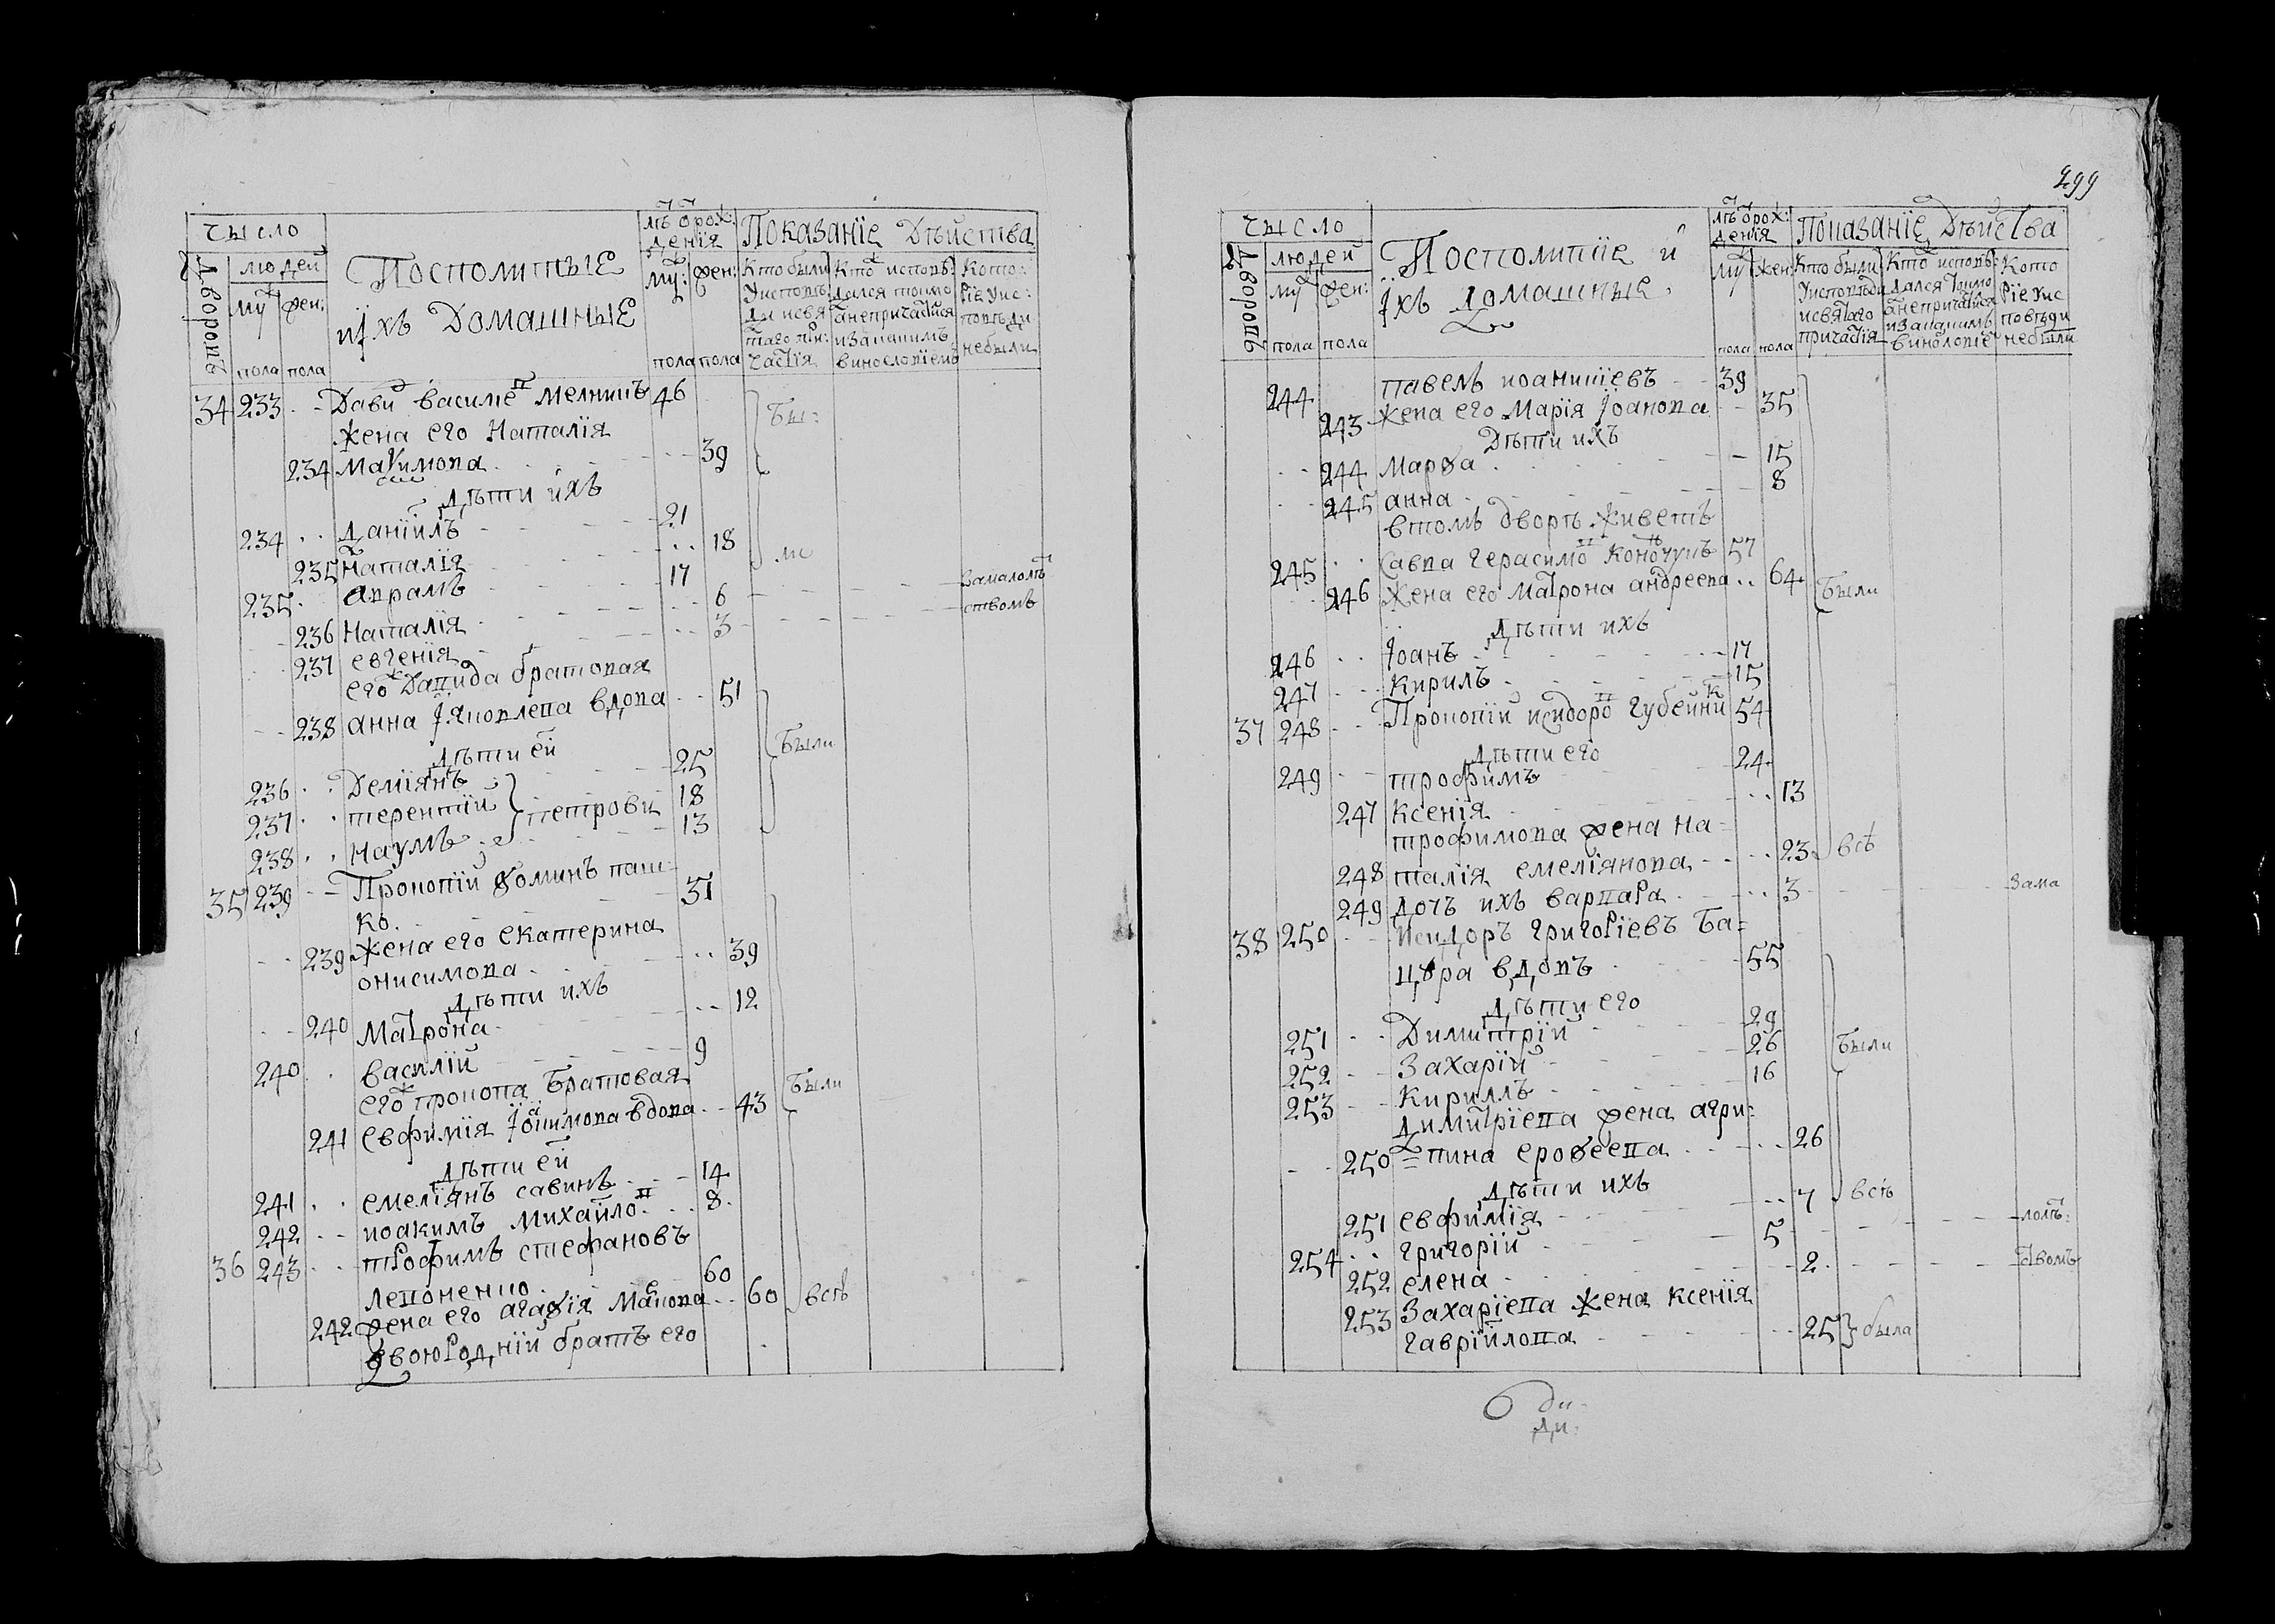 299
число
людей
Дворовъ
му: жен:
пола пола
Посполитые
и ихъ Домашные
лѣтъ ѿ рож:
денїя
му: жен:
пола пола
Показанїе Дѣйства
Кто были
У исповѣ
ди и свя
таго при:
частїя
Кто исповѣ:
дался токмо
а непричастился
и за какимъ
винословїемъ
Кото:
рїе у ис:
повѣди
небыли
34 233 Давид василїев мелникъ 46 Бы:
жена его Наталїя
234 Максимова 39
дѣти ихъ
234 Данїилъ 21
235 Наталїя 18 ли
235 Аврамъ 17
236 Наталїя 6 замалолѣт
237 евгенїя 3 ствомъ
егож Давида братовая
238 анна Яковлева вдова 51
дѣти ей
236 Демїянъ 25 Были
237 терентїй петрови 18
238 Наумъ 13
35 239 Прокопїй Ѳоминъ паш:
ко 31
жена его екатерина
239 онисимова 39
дѣти ихъ
240 Матрона 12
240 василїй 9
егож прокопа Братовая
241 евфимїя Иоакимова вдова 43 Были
дѣти ей
241 емелїянъ савинъ 14
242 иоакимъ Михайлов 8
36 243 трофимъ стефановъ
левоненко 60
242 жена его агаѳїя Макова 60 всѣ
двоюродній братъ его
число
людей
Дворовъ
му: жен:
пола пола
Посполитїе и
ихъ домашные
лѣтъ ѿ рож:
денїя
му: жен:
пола пола
Показанїе Дѣйства
Кто были
У исповѣди
и святаго
причастїя
Кто исповѣ:
дался токмо
а непричастился
и за какимъ
винословїе
Кото
рїе у ис
повѣди
небыли
244 павелъ иоаникїевъ 39
243 жена его Марїя Иоанова 35
Дѣти ихъ
244 Марѳа 15
245 анна 8
втомъ дворѣ живетъ
245 Савва герасимов Коночукъ 57
246 жена его Матрона андреева 64 Были
дѣти ихъ
246 Иоанъ 17
247 Кирилъ 15
37 248 Прокопїй исидоров губейник 54
дѣти его
249 трофимъ 24
247 Ксенїя 13
трофимова жена на=
248 талїя емелїянова 23 всѣ
249 дочъ ихъ варвара 3 Зама
38 250 Исидоръ григорїевъ Ба=
цура вдовъ 55
дѣти его
251 Димитрїй 29
252 Захарїй 26 Были
253 Кириллъ 16
димитрїева жена агри:
250 =пина ероѳеева 26
дѣти ихъ
251 евфимїя 7 всѣ
254 григорїй 5 лолѣт:
252 елена 2 ствомъ
253 Захарїева жена Ксенїя
гаврїилова 25 была
ди.